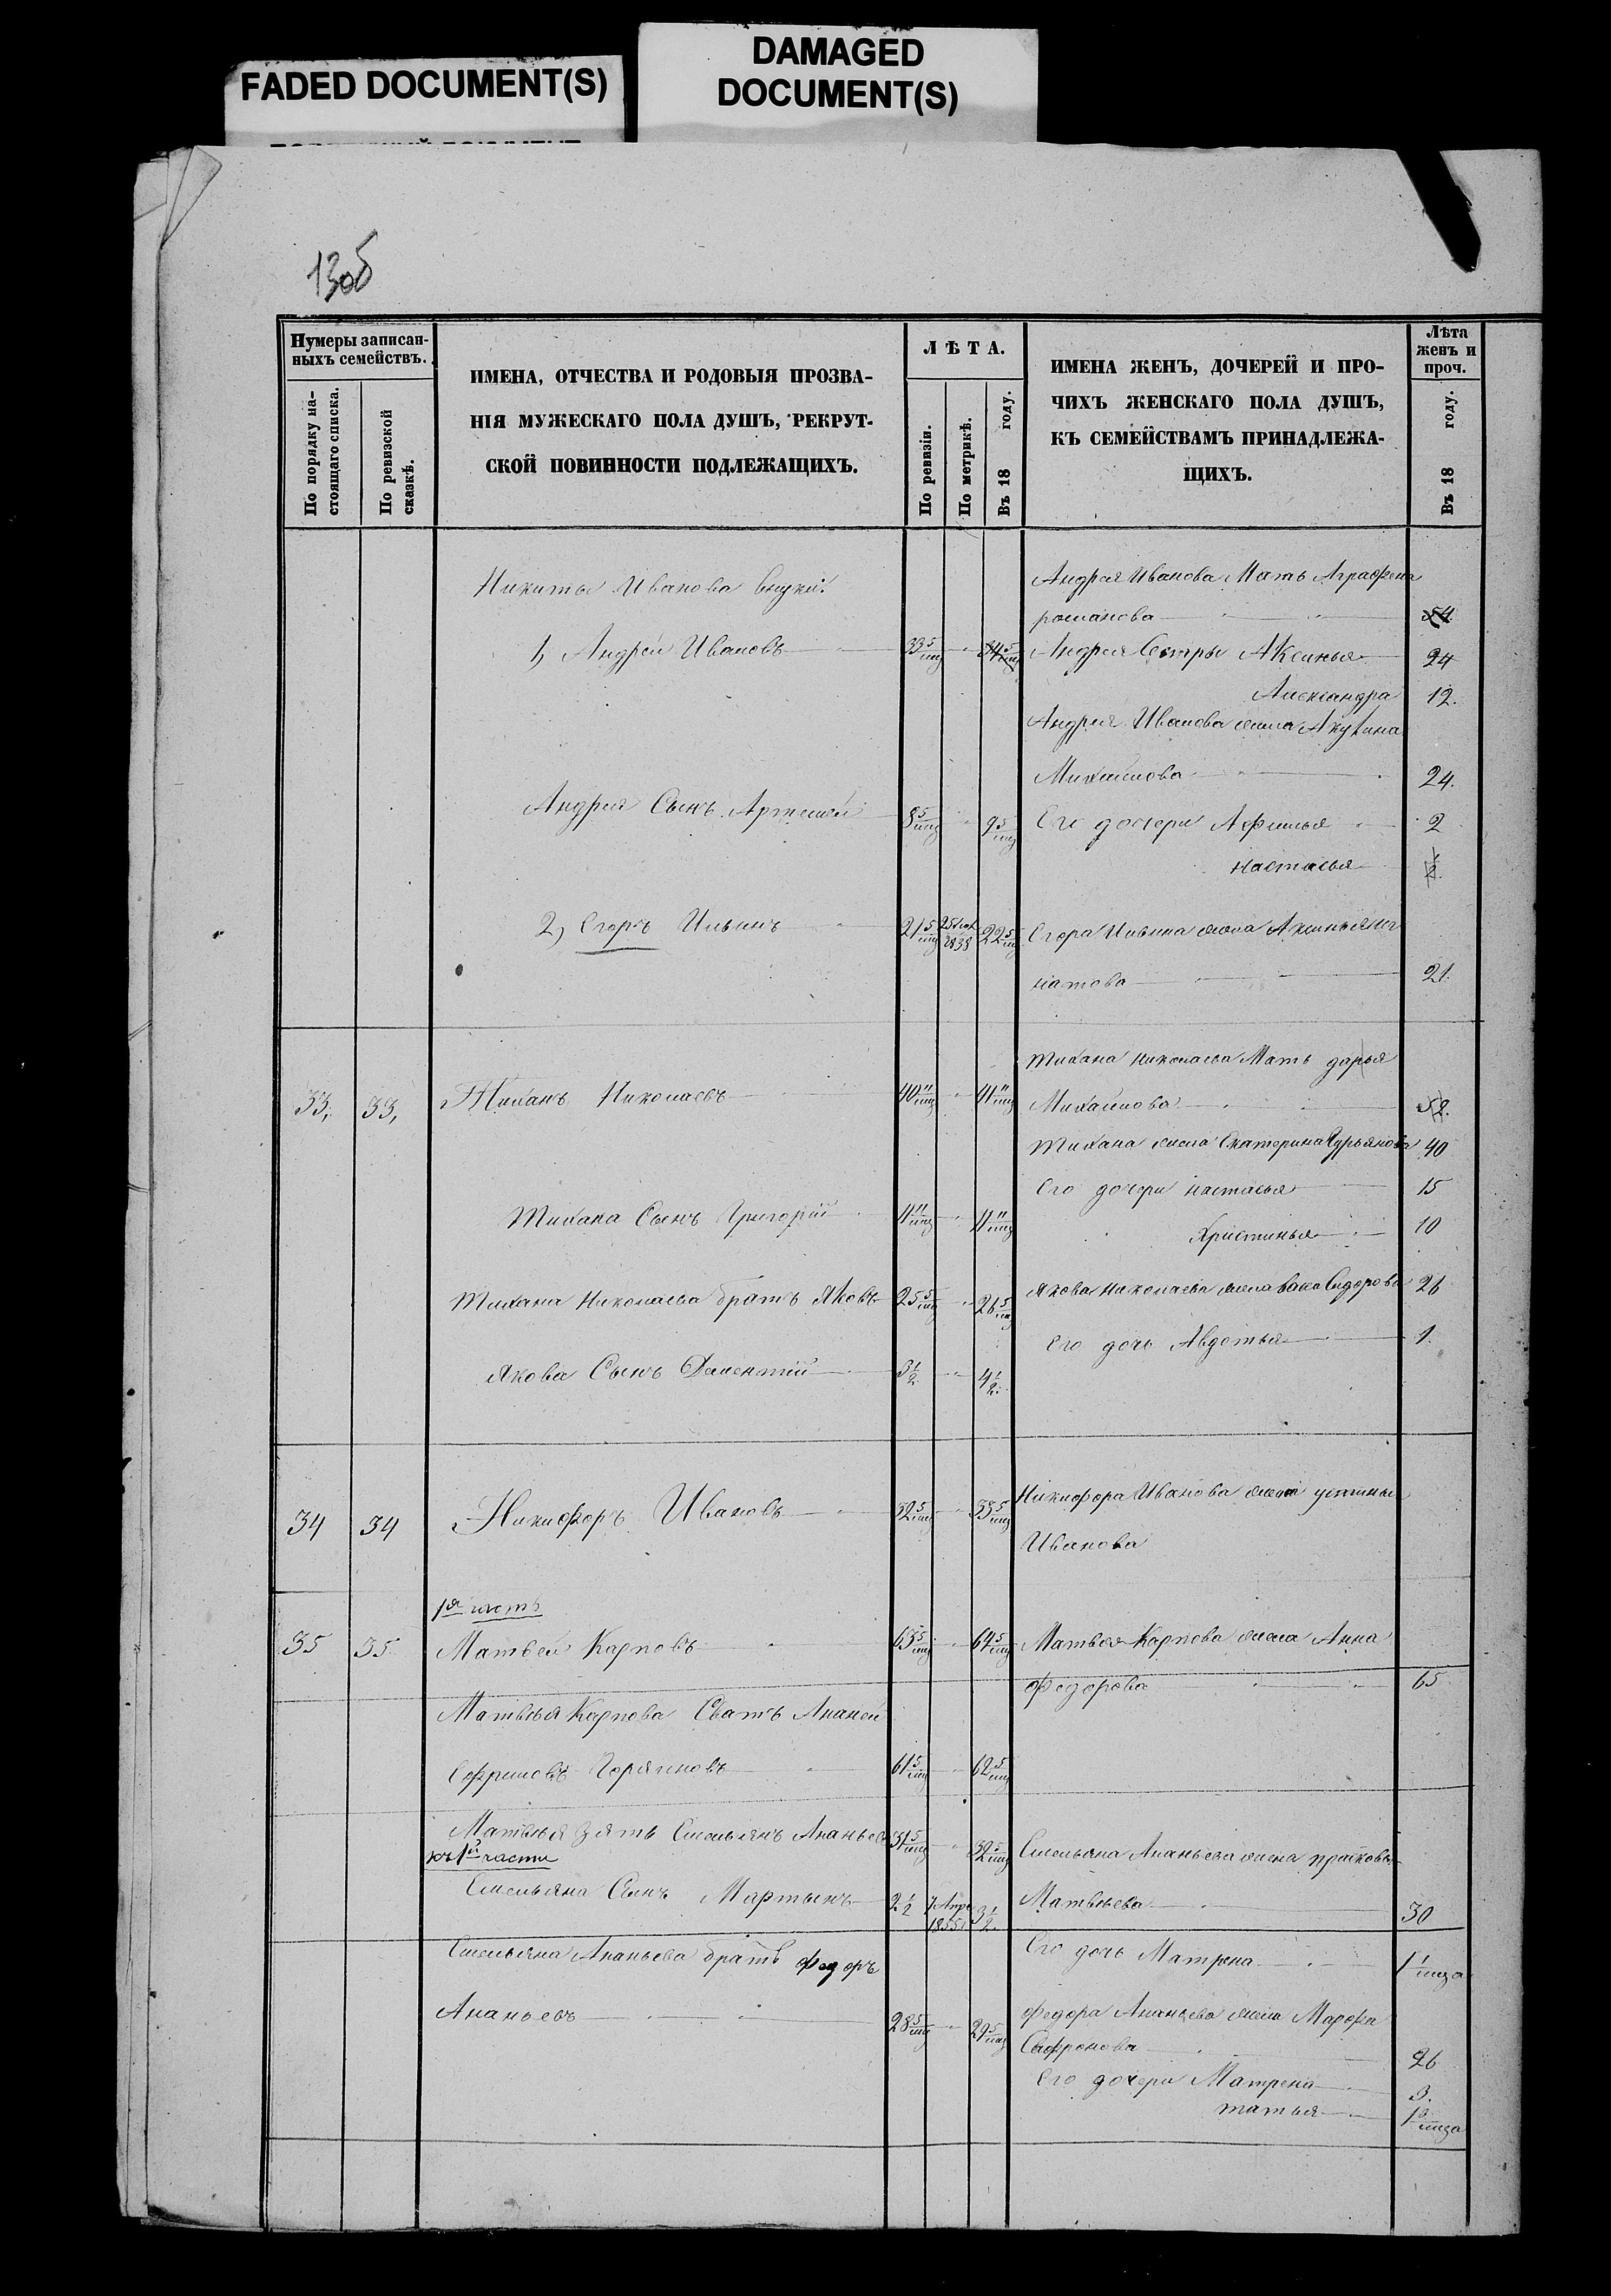 FADED DOCUMENT(S)
DAMAGED
DOCUMENT(S)
130б
Нумеры записан-
ныхъ семействъ.
По порядку на-
стоящаго списка.
По ревизской
сказкѣ.
ИМЕНА, ОТЧЕСТВА И РОДОВЫЯ ПРОЗВА-
НІЯ МУЖЕСКАГО ПОЛА ДУШЪ, РЕКРУТ-
СКОЙ ПОВИННОСТИ ПОДЛЕЖАЩИХЪ.
ЛѢТА.
По ревизіи.
По метрикѣ.
Въ 18 году.
ИМЕНА ЖЕНЪ, ДОЧЕРЕЙ И ПРО-
ЧИХЪ ЖЕНСКАГО ПОЛА ДУШЪ,
КЪ СЕМЕЙСТВАМЪ ПРИНАДЛЕЖА-
ЩИХЪ.
Лѣта
женъ и
проч.
Въ 18 году.
Никиты Иванова внуки:
Андрея Иванова Мать Аграфена
романова 54
1, Андрей Ивановъ 33 5/мц 34 5/мц
Андрея Сестры Аксинья 24
Александра 12.
Андрея Иванова жена Акулина
Михайлова 24.
Андрея Сынъ Артемей 8 5/мц 9 5/мц
Его дочери Афимья 2
настасья 1/2.
2, Егоръ Ильинъ 21 5/мц 1835 22 5/мц
Егора Ильина жена Аксинья Иг
натова 21.
Тихана Николаева Мать дарья
33, 33, Тиханъ Николаевъ 40 11/мц 41 11/мц
Михайлова 58.
Тихана жена Екатерина Гурьянова 40
Его дочери настасья 15
Тихана Сынъ Григорій 11/мц 11 11/мц
Христинья 10
Тихана Николаева братъ Яковъ 25 5/мц 26 5/мц
Якова Николаева жена Сидорова 26
Его дочь Авдотья 1.
Якова Сынъ Дементій 3 1/2. 4 1/2.
34 34 Никифоръ Ивановъ 32 5/мц 33 5/мц
Никифора Иванова жена устинья
Иванова
1я часть
35 35 Матвей Карповъ 63 5/мц 64 5/мц
Матвея Карпова жена Анна
Федорова 65
Матвѣя Карпова Сватъ Ананей
Горяиновъ 61 5/мц 62 5/мц
Матвѣя Зять Емельянъ Ананьевъ 31 5/мц 32 5/мц
къ 1й части
Емельяна Ананьева жена прасковья
Емельяна Сынъ Мартынъ 2 1/2 7 Апре 1855 3 1/2.
Матвѣева 30
Емельяна Ананьева братъ Федоръ
Его дочь Матрена 1/мца
Ананьевъ 28 5/мц 29 5/мц
Федора Ананьева жена Марфа
Сафронова 26
Его дочери Матрена 3.